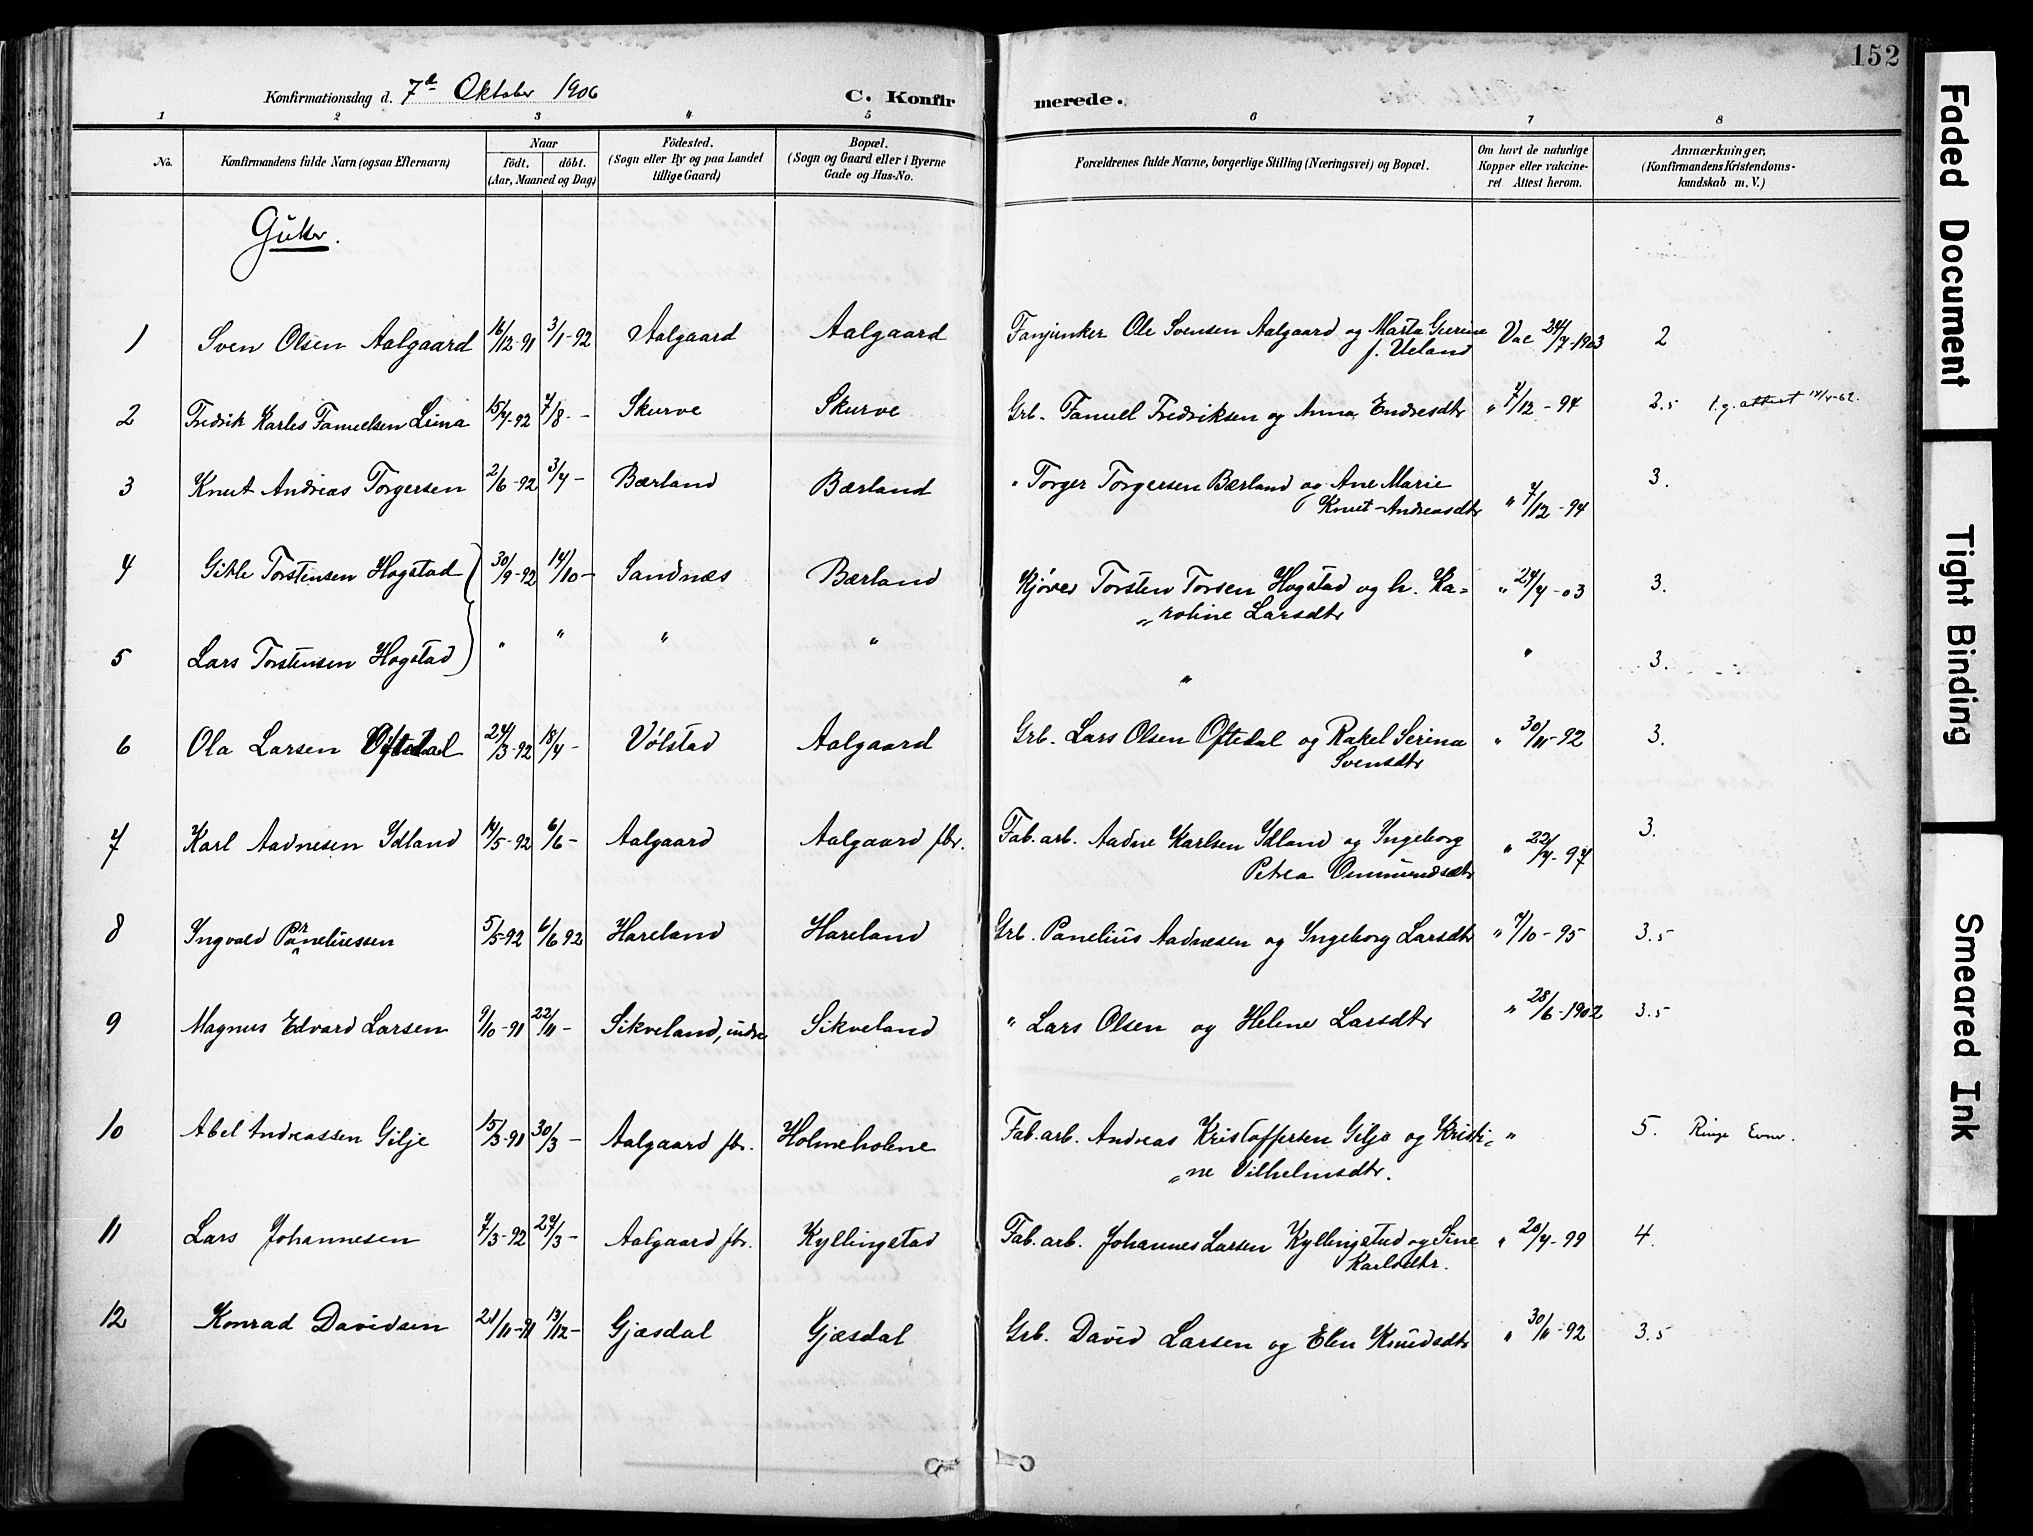 152
Konfirmationsdag d. 7de Oktober 1906 C. Konfirmerede.
1 2 3 4 5 6 7 8
No. Konfirmandens fulde Navn (ogsaa Efternavn) Naar födt. döbt. (Aar, Maaned og Dag) Födested. (Sogn eller By og paa Landet tillige Gaard) Bopæl. (Sogn og Gaard eller i Byerne Gade og Hus-No. Forældrenes fulde Navne, borgerlige Stilling (Næringsvei) og Bopæl. Om havt de naturlige Kopper eller vakcineret Attest herom. Anmærkninger, (Konfirmandens Kristendomskundskab m. V.)
Gutter.
1 Sven Olsen Aalgaard 16/12-91 3/1-92 Aalgaard Aalgaard Fanjunker Ole Svensen Aalgaard og Marta Gurine f. Ueland Vac 24/7-1903 2
2 Fredrik Karles Fanuelsen Lima 15/7-92 7/8- - Skurve Skurve Grb. Fanuel Fredriksen og Anna Endresdtr " 7/12-94 2.5 attest
3 Knut Andreas Torgersen 2/6-92 3/7- Bærland Bærland " Torger Torgersen Bærland og Ane Marie Knut-Andreasdtr " 7/12-94 3.
4 Gitle Torstensen Hogstad 30/9-92 14/10- Sandnæs Bærland Kjører Torsten Torsen Hogstad og h. Ka=
"roline Larsdtr " 24/7-03 3.
5 Lars Torstensen Hogstad " " " " " " 3.
6 Ola Larsen Oftedal 24/3-92 18/4- Vølstad Aalgaard Grb. Lars Olsen Oftedal og Rakel Serina Svensdtr " 30/11-92 3.
7 Karl Aadnesen Idland 14/5-92 6/6- Aalgaard Aalgaard fbr. Fab.arb. Aadne Karlsen Idland og Ingeborg Petrea Ommundsdtr " 22/7-97 3.
8 Ingvald Paneliussen 5/5-92 6/6 92 Hareland Hareland Grb. Panelius Aadnesen og Ingeborg Larsdtr " 7/10-95 3.5
9 Magnus Edvard Larsen 9/10-91 22/11- Sikveland, indre Sikveland " Lars Olsen og Helene Larsdtr " 28/6-1902 3.5
10 Abel Andreassen Gilje 15/3-91 30/3- Aalgaard fbr. Holmeholene Fab.arb. Andreas Kristoffersen Gilje og Kristi=
"ne Vilhelmsdtr. " 5. Ringe Evner.
11 Lars Johannesen 7/3-92 27/3- Aalgaard fbr. Kyllingstad Fab.arb. Johannes Larsen Kyllingstad og Sine Karlsdtr. " 20/7-99 4.
12 Konrad Davidsen 21/11-91 13/12- Gjæsdal Gjæsdal Grb. David Larsen og Elen Knudsdtr " 30/11-92 3.5
Faded Document
Tight Binding
Smeared Ink